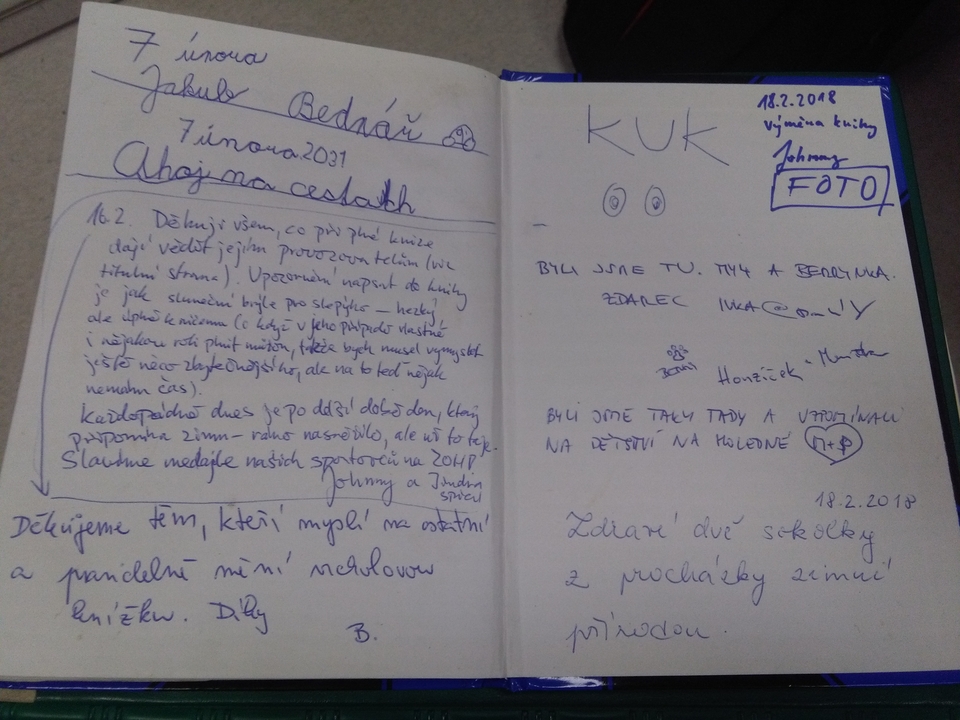 7 února
Jakub Bednář
7 února 2031
Ahoj na cestach
16.2. Děkuji všem, co při plné knize
dají vědět jejím provozovatelům (viz
titulní strana). Upozornění napsat do knihy
je jak sluneční brýle pro slepýho – hezký
ale úplně k ničemu (i když v jeho případě vlastně
i nějakou roli plnit můžou, takže bych musel vymyslet
ještě něco zbytečnějšího, ale na to teď nějak
nemám čas).
Každopádně dnes je po delší době den, který
připomíná zimu – ráno nasněžilo, ale už to taje.
Slavíme medajle našich sportovců na ZOH!
Johnny a Jindra
Děkujeme těm, kteří myslí na ostatní
a pravidelně mění vrcholovou
knížku. Díky
B.
KUK
18.2.2018
výměna knihy
Johnny
FOTO
BYLI JSME TU. MY A BERRYNKA.
ZDAREC IVKA @
Honzíček
BYLI JSME TAKY TADY A VZPOMÍNALI
NA DĚTSTVÍ NA HOLEDNÉ M+P
18.2.2018
Zdraví dvě sokolky
z procházky zimní
přírodou.